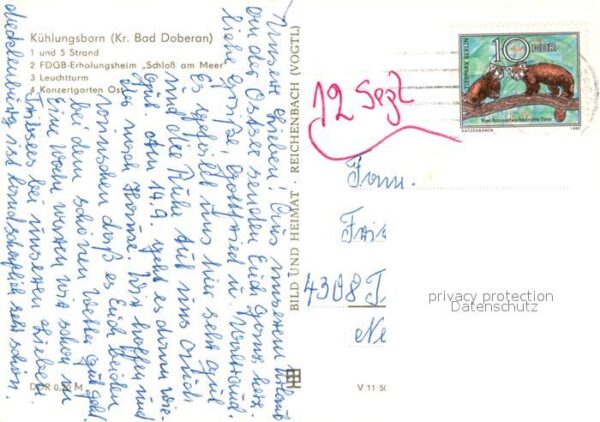 Kühlungsborn (Kr. Bad Doberan)
1 und 5 Strand
2 FDGB-Erholungsheim „Schloß am Meer"
3 Leuchtturm
4 Konzertgarten Ost
DDR 0,20 M
Unsere Lieben! Aus unserem Urlaub
an der Ostsee senden Euch ganz herz.
liche Grüße Gottfried u.
Es gefällt uns hier sehr gut
und die Ruhe tut uns
gut. Am 14.9. geht es dann wie-
der nach Hause. Wir hoffen und
wünschen daß es Euch beiden
bei dem schönen Wetter gut geht.
Eine Woche waren wir schon in
bei unseren Lieben.
ist landschaftlich sehr schön.
BILD UND HEIMAT · REICHENBACH (VOGTL)
V 11 50
12 Sept
TIERPARK BERLIN
10 DDR
Vom Aussterben bedrohte Tiere
KATZENBÄREN
1980
Fam.
4308 T
Ne
privacy protection
Datenschutz